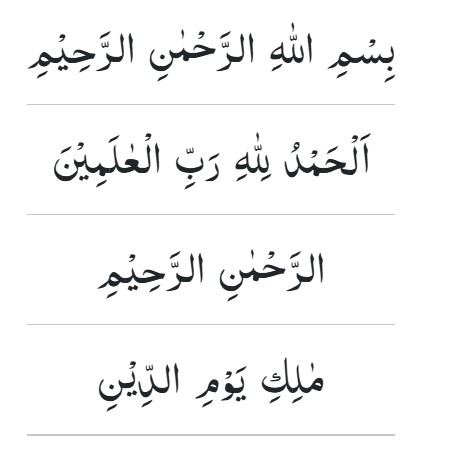 بِسْمِ اللّٰهِ الرَّحْمٰنِ الرَّحِيْمِ
اَلْحَمْدُ لِلّٰهِ رَبِّ الْعٰلَمِيْنَ
الرَّحْمٰنِ الرَّحِيْمِ
مٰلِكِ يَوْمِ الدِّيْنِ